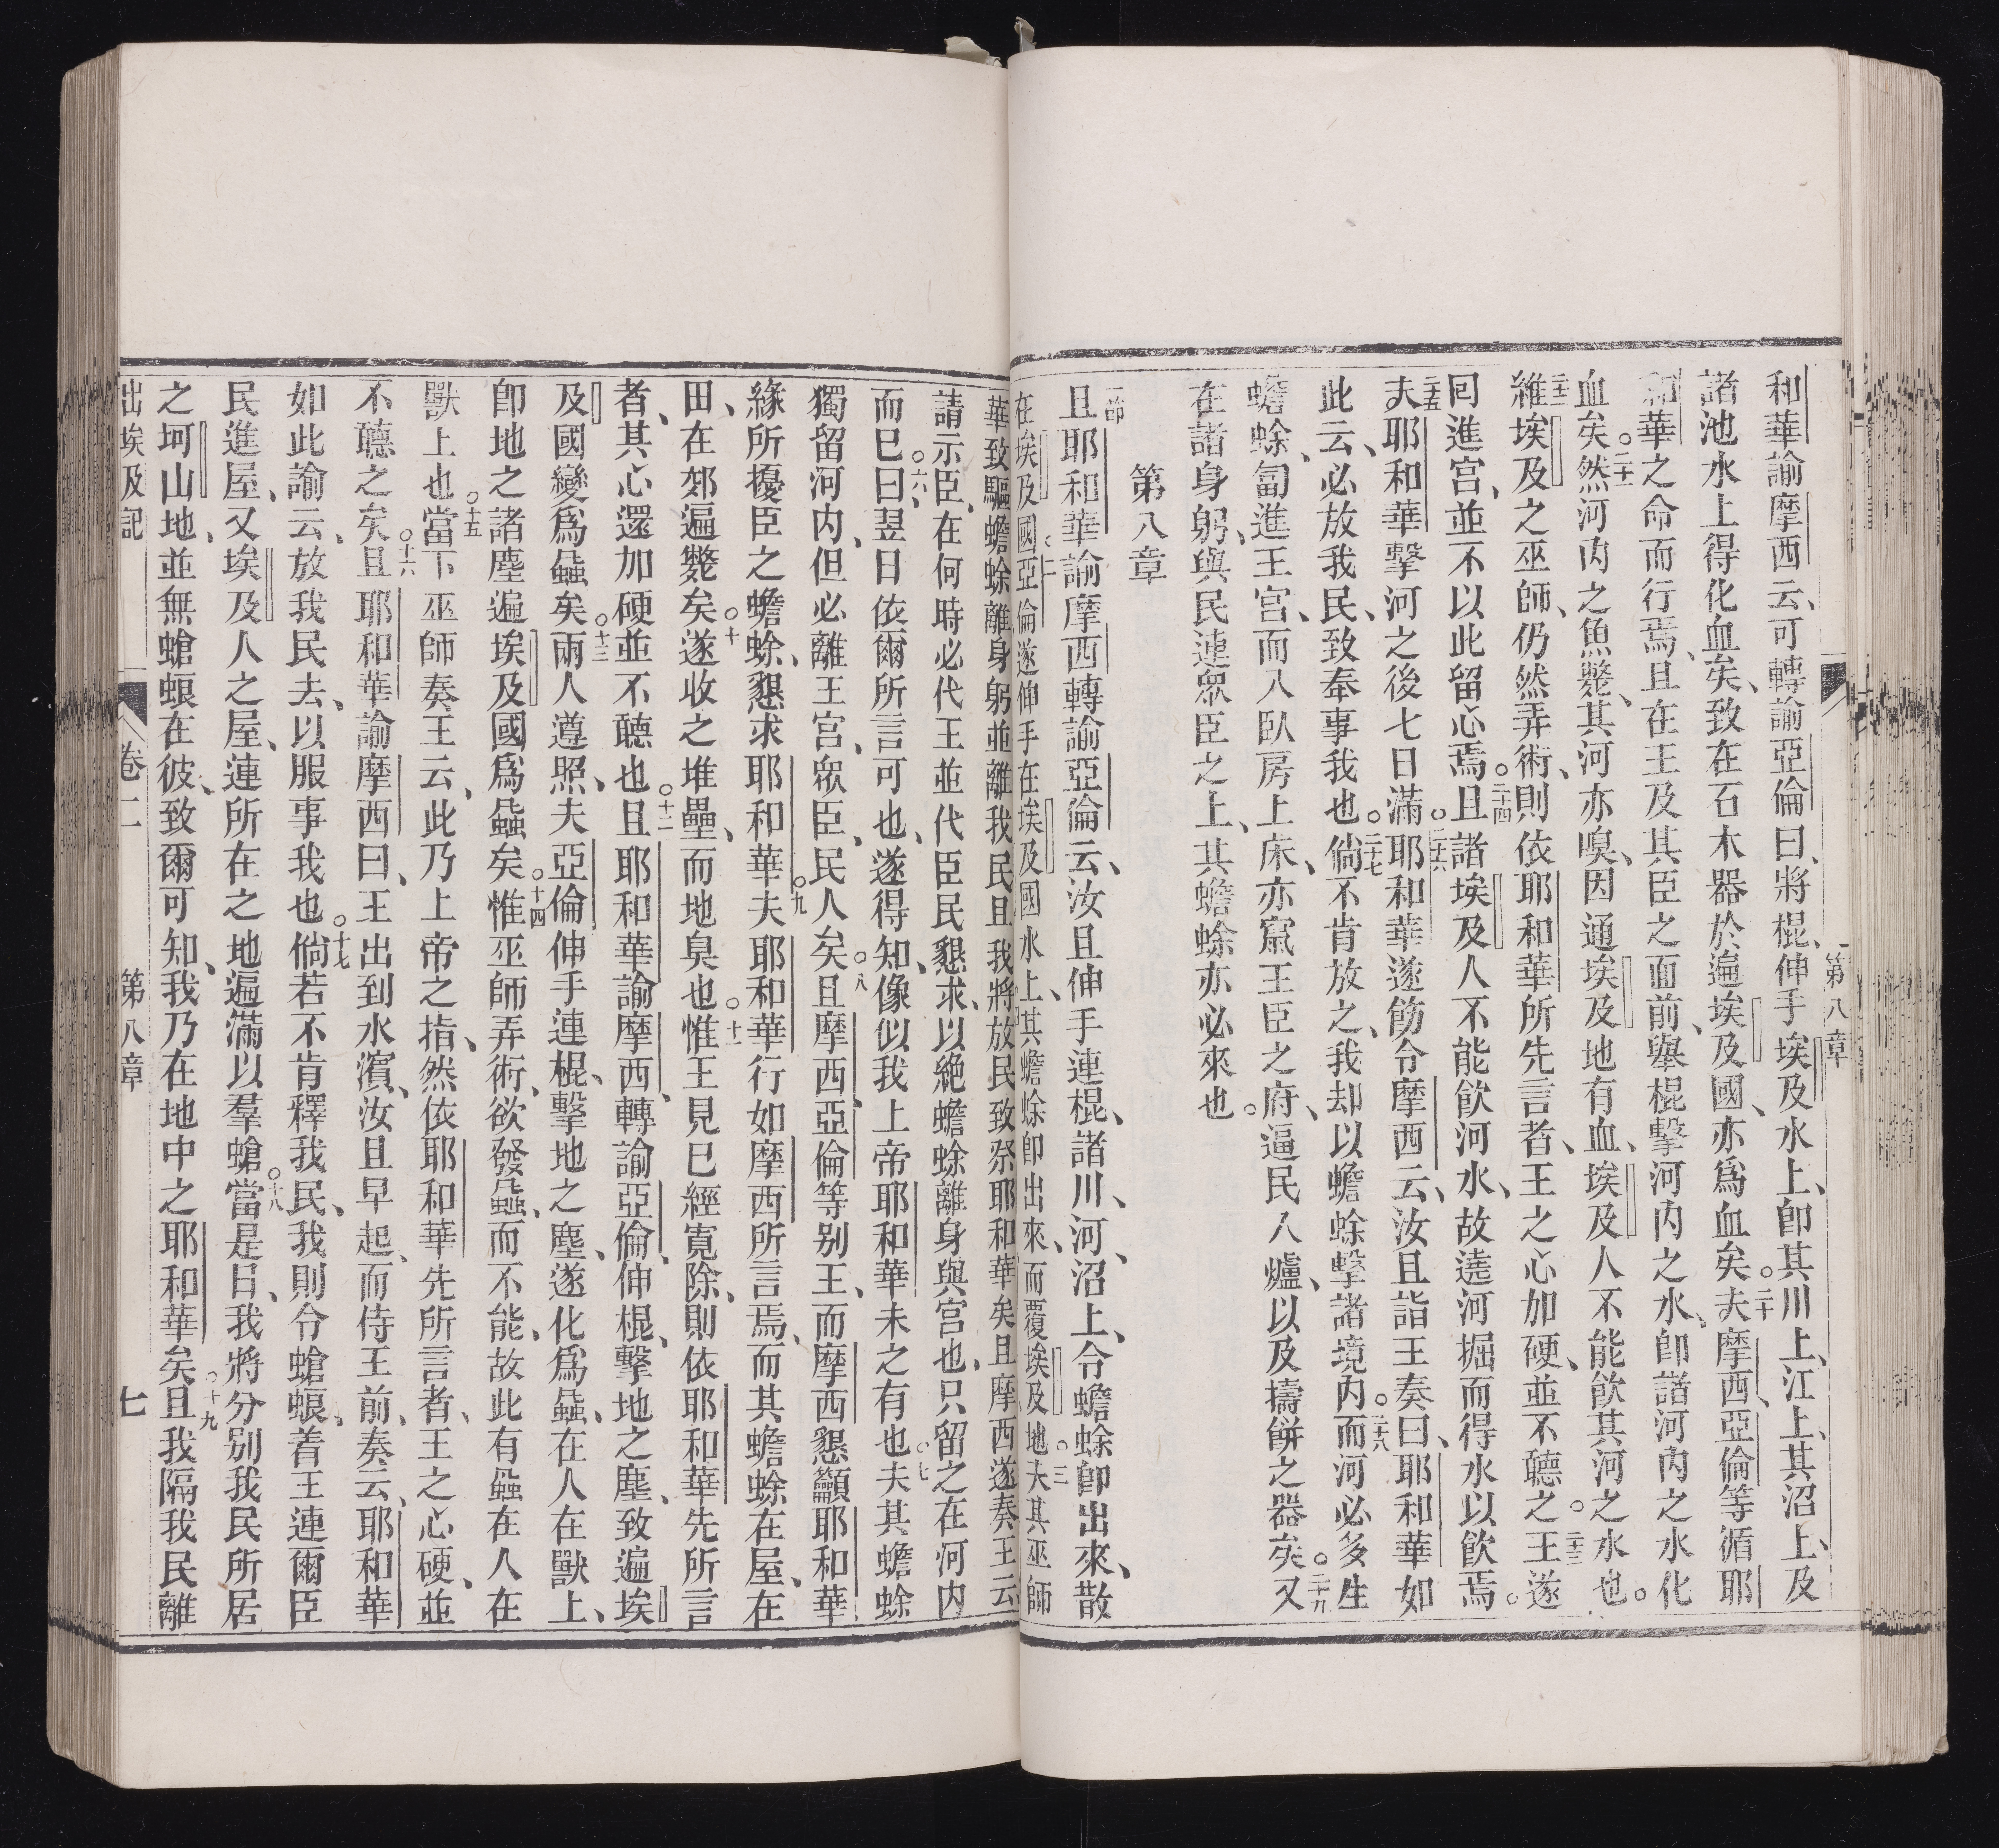 第八章
和華諭摩西云、可轉諭亞倫曰、將棍、伸手埃及水上、卽其川上、江上、其沼上、及
諸池水上得化血矣、致在石木器於遍埃及國、亦爲血矣。二十夫摩西、亞倫等循耶
和華之命而行焉、且在王及其臣之面前、舉棍擊河內之水、卽諸河內之水化
血矣。二十一然河內之魚斃、其河亦嗅、因通埃及地有血、埃及人不能飲其河之水也。
二十二維埃及之巫師、仍然弄術、則依耶和華所先言者、王之心加硬、並不聽之。二十三王遂
囘進宮、並不以此留心焉。二十四且諸埃及人不能飲河水、故遶河掘而得水以飲焉。
二十五夫耶和華擊河之後七日滿。二十六耶和華遂飭令摩西云、汝且詣王奏曰、耶和華如
此云、必放我民、致奉事我也。二十七倘不肯放之、我却以蟾蜍擊諸境內。二十八而河必多生
蟾蜍、匐進王宮、而入臥房上床、亦竄王臣之府、逼民入爐、以及擣餅之器矣。二十九又
在諸身躬、與民連眾臣之上、其蟾蜍亦必來也。
第八章
一節且耶和華諭摩西轉諭亞倫云、汝且伸手連棍、諸川、河、沼上、令蟾蜍卽出來、散
在埃及國。二亞倫遂伸手在埃及國水上、其蟾蜍卽出來、而覆埃及地。三夫其巫師
華致驅蟾蜍離身躬並離我民且我將放民致祭耶和華矣且摩西遂奏王云
請示臣、在何時必代王並代臣民懇求、以絕蟾蜍離身與宮也、只留之在河內
而已。六曰、翌日依爾所言可也、遂得知、像似我上帝耶和華未之有也。七夫其蟾蜍
獨留河內、但必離王宮、眾臣、民人矣。八且摩西、亞倫等别王、而摩西懇籲耶和華
緣所擾臣之蟾蜍、懇求耶和華。九夫耶和華行如摩西所言焉、而其蟾蜍在屋、在
田、在郊遍斃矣。十遂收之堆壘、而地臭也。十一惟王見已經寬除、則依耶和華先所言
者、其心還加硬並不聽也。十二且耶和華諭摩西、轉諭亞倫、伸棍、擊地之塵、致遍埃
及國變爲蝨矣。十三兩人遵照、夫亞倫伸手連棍、擊地之塵、遂化爲蝨、在人在獸上、
卽地之諸塵遍埃及國爲蝨矣。十四惟巫師弄術、欲發蝨、而不能、故此有蝨在人在
獸上也。十五當下巫師奏王云、此乃上帝之指、然依耶和華先所言者、王之心硬、並
不聽之矣。十六且耶和華諭摩西曰、王出到水濱、汝且早起、而侍王前、奏云、耶和華
如此諭云、放我民去、以服事我也。十七倘若不肯釋我民、我則令螥蜋、着王連爾臣
民進屋、又埃及人之屋、連所在之地遍滿以羣螥。十八當是日、我將分别我民所居
之坷山地、並無螥蜋在彼、致爾可知、我乃在地中之耶和華矣。十九且我隔我民離
出埃及記 卷二 第八章 七